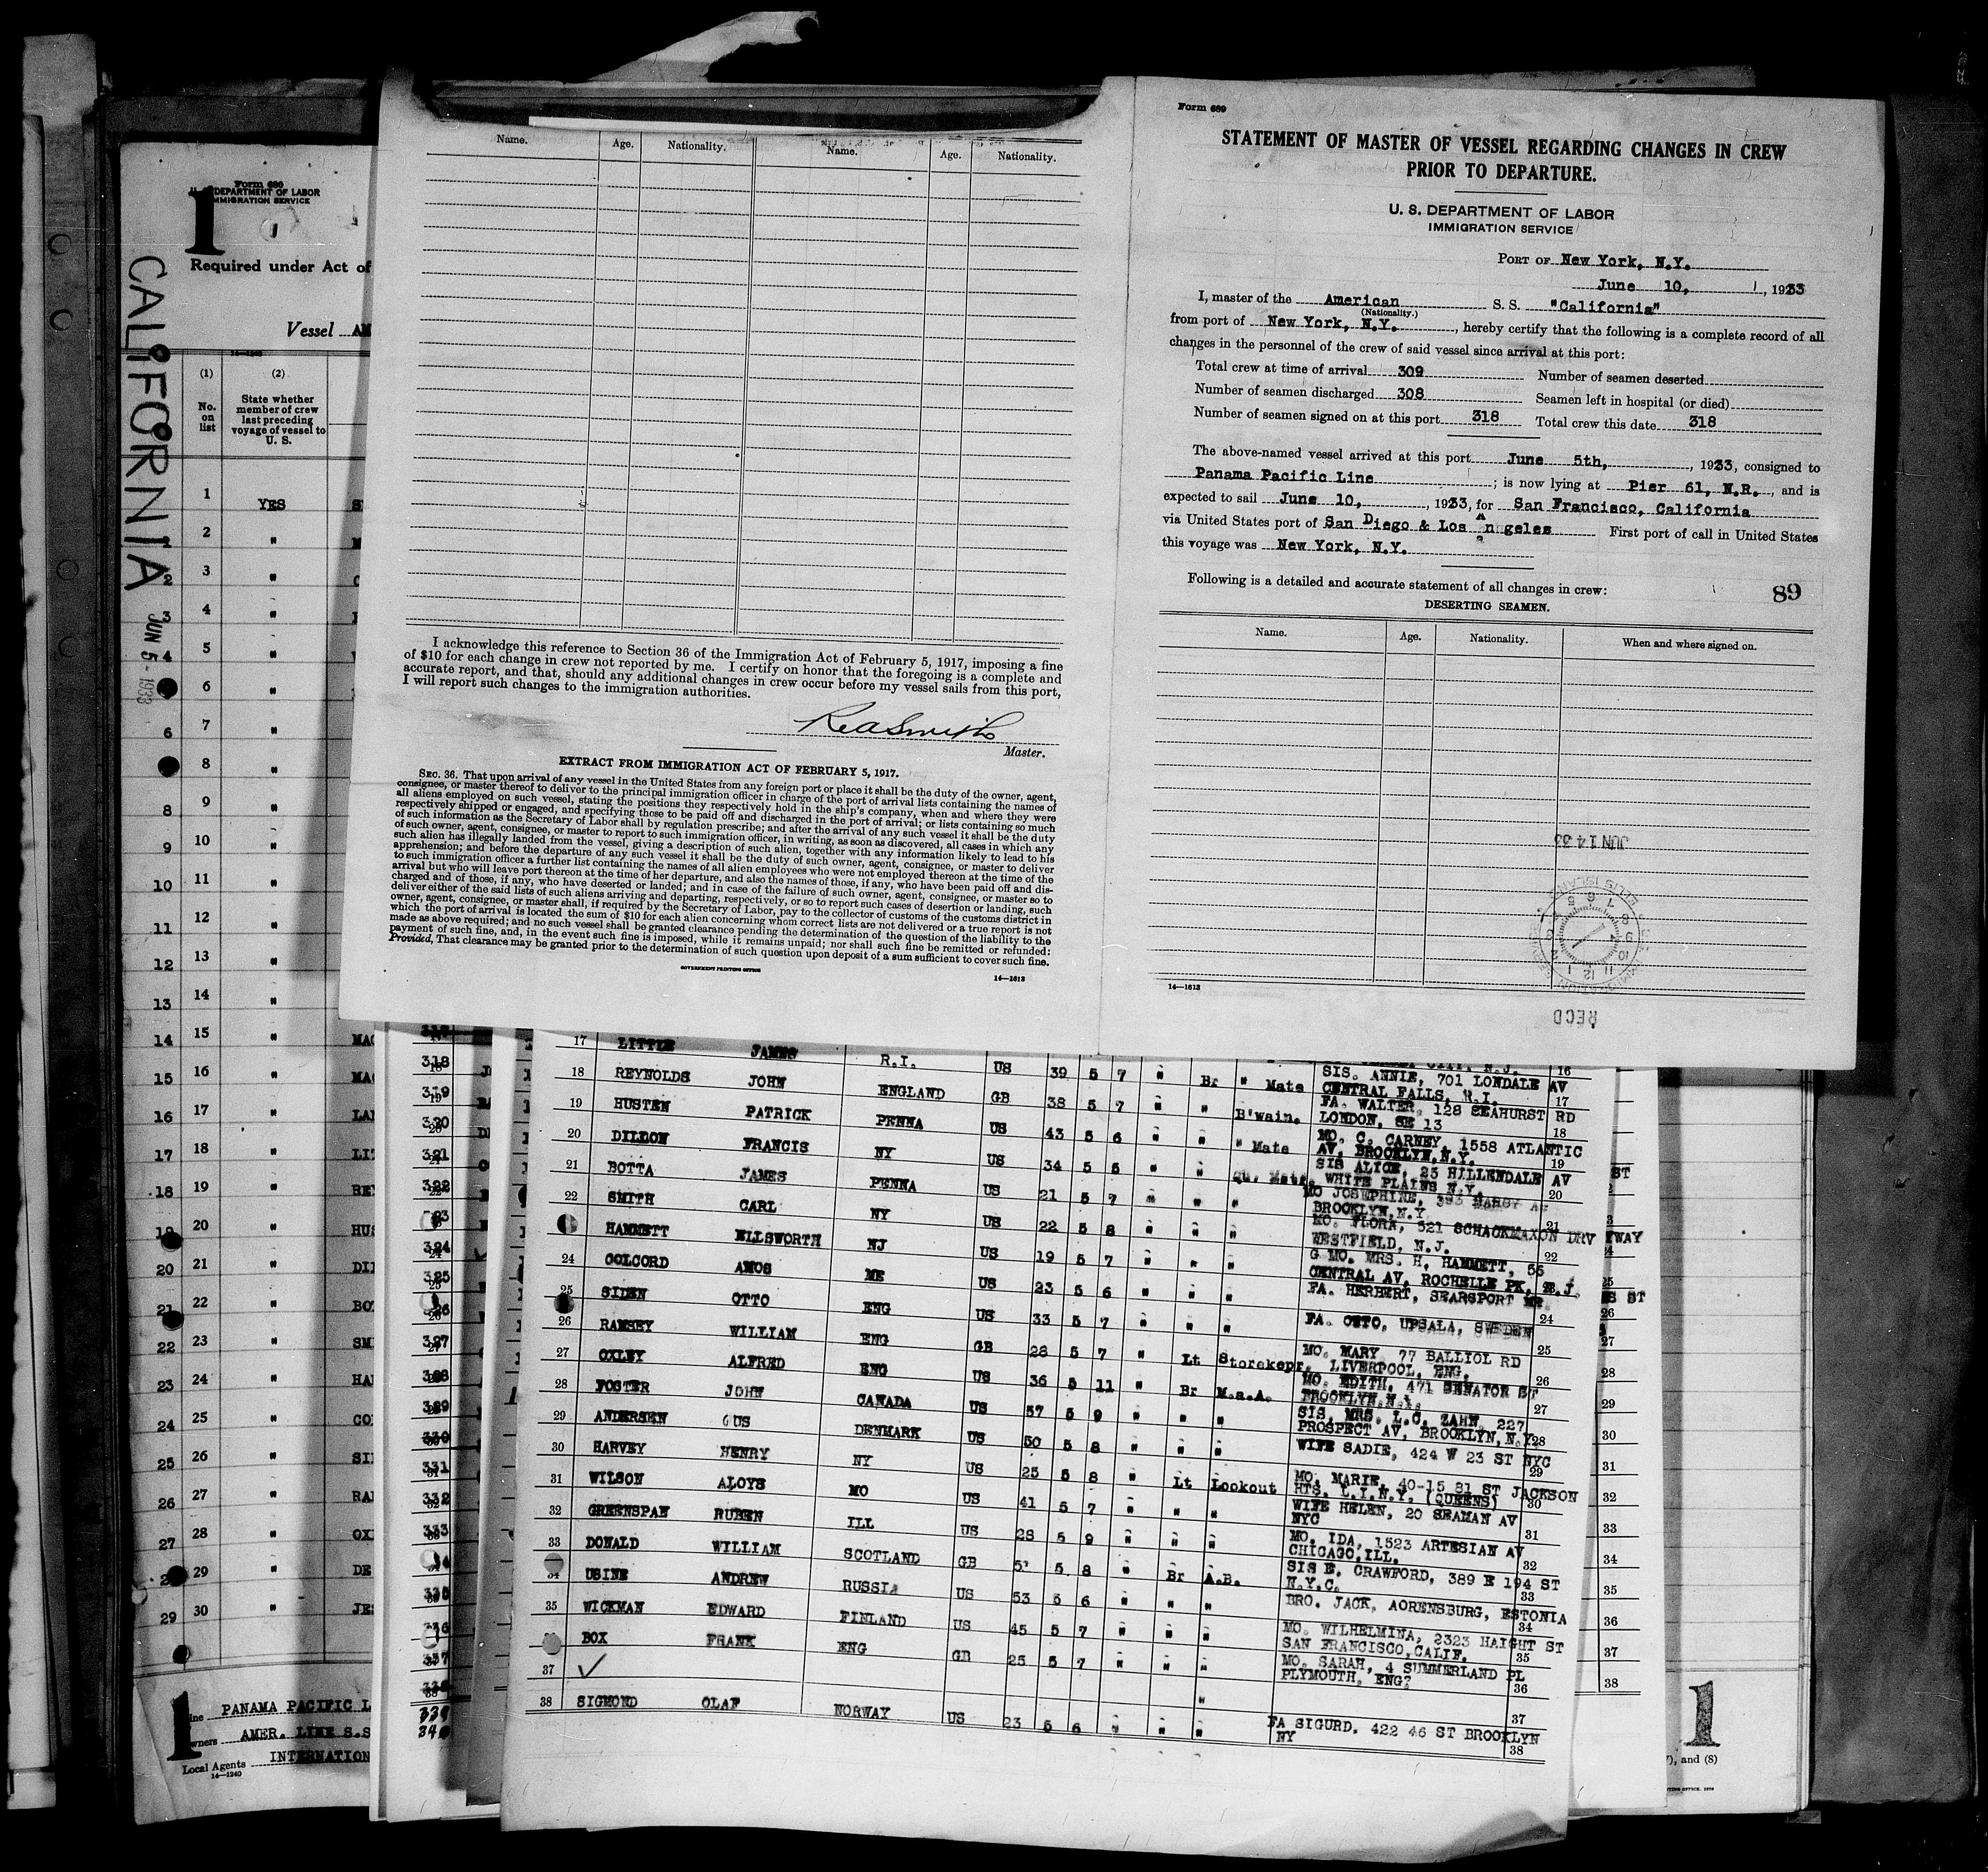 Form 680
U. S. DEPARTMENT OF LABOR
IMMIGRATION SERVICE
1
Required under Act of
Vessel
CALIFORNIA
JUN 5 - 1933
14—1240
(1) (2)
No. on list
State whether
member of crew
last preceding
voyage of vessel to
U. S.
1 YES
2 "
3 "
4 "
5 "
6 "
7 "
8 "
9 "
10 "
11 "
12 "
13 "
14 "
15 " MAC
16 " MAC
17 " LAN
18 " LIT
19 " REY
20 " HUS
21 " DIL
22 " BOT
23 " SMI
24 " HAM
25 " COL
26 " SID
27 " RAM
28 " OXL
29 " DE
30 " JES
PANAMA PACIFIC L
AMER. LINE S.S
Local Agents INTERNATION
14—1240
Name. Age. Nationality. Name. Age. Nationality.
I acknowledge this reference to Section 36 of the Immigration Act of February 5, 1917, imposing a fine
of $10 for each change in crew not reported by me. I certify on honor that the foregoing is a complete and
accurate report, and that, should any additional changes in crew occur before my vessel sails from this port,
I will report such changes to the immigration authorities.
Master.
EXTRACT FROM IMMIGRATION ACT OF FEBRUARY 5, 1917.
SEC. 36. That upon arrival of any vessel in the United States from any foreign port or place it shall be the duty of the owner, agent,
consignee, or master thereof to deliver to the principal immigration officer in charge of the port of arrival lists containing the names of
all aliens employed on such vessel, stating the positions they respectively hold in the ship's company, when and where they were
respectively shipped or engaged, and specifying those to be paid off and discharged in the port of arrival; or lists containing so much
of such information as the Secretary of Labor shall by regulation prescribe; and after the arrival of any such vessel it shall be the duty
of such owner, agent, consignee, or master to report to such immigration officer, in writing, as soon as discovered, all cases in which any
such alien has illegally landed from the vessel, giving a description of such alien, together with any information likely to lead to his
apprehension; and before the departure of any such vessel it shall be the duty of such owner, agent, consignee, or master to deliver
to such immigration officer a further list containing the names of all alien employees who were not employed thereon at the time of the
arrival but who will leave port thereon at the time of her departure, and also the names of those, if any, who have been paid off and dis-
charged and of those, if any, who have deserted or landed; and in case of the failure of such owner, agent, consignee, or master so to
deliver either of the said lists of such aliens arriving and departing, respectively, or so to report such cases of desertion or landing, such
owner, agent, consignee, or master shall, if required by the Secretary of Labor, pay to the collector of customs of the customs district in
which the port of arrival is located the sum of $10 for each alien concerning whom correct lists are not delivered or a true report is not
made as above required; and no such vessel shall be granted clearance pending the determination of the question of the liability to the
payment of such fine, and, in the event such fine is imposed, while it remains unpaid; nor shall such fine be remitted or refunded:
Provided, That clearance may be granted prior to the determination of such question upon deposit of a sum sufficient to cover such fine.
GOVERNMENT PRINTING OFFICE 14—1613
Form 689
STATEMENT OF MASTER OF VESSEL REGARDING CHANGES IN CREW
PRIOR TO DEPARTURE.
U. S. DEPARTMENT OF LABOR
IMMIGRATION SERVICE
PORT OF New York, N.Y.
June 10, , 1933
I, master of the American S. S. "California"
(Nationality.)
from port of New York, N.Y., hereby certify that the following is a complete record of all
changes in the personnel of the crew of said vessel since arrival at this port:
Total crew at time of arrival 309 Number of seamen deserted
Number of seamen discharged 308 Seamen left in hospital (or died)
Number of seamen signed on at this port 318 Total crew this date 318
The above-named vessel arrived at this port June 5th, , 1933, consigned to
Panama Pacific Line ; is now lying at Pier 61, N.R., and is
expected to sail June 10, , 1933, for San Francisco, California
via United States port of San Diego & Los Angeles First port of call in United States
this voyage was New York, N.Y.
Following is a detailed and accurate statement of all changes in crew:
89
DESERTING SEAMEN.
Name. Age. Nationality. When and where signed on.
JUN 14 33
RECD
14—1613
17 LITTLE JAMES R.I. US 39 5 7 " Br " Mate SIS. ANNIE, 701 LONDALE AV
CENTRAL FALLS, R.I. 17
18 REYNOLDS JOHN ENGLAND GB 38 5 7 " " B'wain. FA. WALTER, 128 SEAHURST RD
LONDON, SE 13 18
19 HUSTEN PATRICK PENNA US 43 5 6 " " " Mate MO. C. CARNEY, 1558 ATLANTIC
AV, BROOKLYN,N.Y. 19
20 DILLON FRANCIS NY US 34 5 6 " " Qu. Mstr. SIS ALICE, 23 HILLENDALE AV
WHITE PLAINS N.Y. 20
21 BOTTA JAMES PENNA US 21 5 7 " " " MO JOSEPHINE,
BROOKLYN,N.Y. 21
22 SMITH CARL NY US 22 5 8 " " " MO. FLORA, 521 SCHACKMAXON DRV
WESTFIELD, N.J. 22
HAMMETT ELLSWORTH NJ US 19 5 7 " " " G MO. MRS. H, HAMMETT, 56
CENTRAL AV, ROCHELLE PK, N.J.
24 COLCORD AMOS ME US 23 5 6 " " " FA. HERBERT, SEARSPORT ME. 24
25 SIDEN OTTO ENG US 33 5 7 " " " FA. OTTO, UPSALA, SWEDEN 25
26 RAMSEY WILLIAM ENG GB 28 5 7 " Lt Storekepr. MO. MARY 77 BALLIOL RD
LIVERPOOL, ENG. 26
27 OXLEY ALFRED ENG US 36 5 11 " Br M.a.A. MO. EDITH, 471 SENATOR ST
BROOKLYN,N.Y. 27
28 FOSTER JOHN CANADA US 57 5 9 " " " SIS, MRS. L.C. ZAHN, 227
PROSPECT AV, BROOKLYN,N.Y. 28
29 ANDERSEN GUS DENMARK US 50 5 8 " " " WIFE SADIE, 424 W 23 ST NYC 29
30 HARVEY HENRY NY US 25 5 8 " Lt Lookout MO. MARIE, 40-15 81 ST JACKSON
HTS. L.I.N.Y. (QUEENS) 30
31 WILSON ALOYS MO US 41 5 7 " " " WIFE HELEN, 20 SEAMAN AV
NYC 31
32 GREENSPAN RUBEN ILL US 28 5 9 " " " MO. IDA, 1523 ARTESIAN AV
CHICAGO,ILL. 32
33 DONALD WILLIAM SCOTLAND GB 5 8 " Br A.B. SIS E. CRAWFORD, 389 E 194 ST
N.Y.C. 33
34 USINE ANDREW RUSSIA US 53 5 6 " " " BRO. JACK, AORENSBURG, ESTONIA 34
35 WICKMAN EDWARD FINLAND US 45 5 7 " " " MO. WILHELMINA, 2323 HAIGHT ST
SAN FRANCISCO,CALIF. 35
BOX FRANK ENG GB 25 5 7 " " " MO. SARAH, 4 SUMMERLAND PL
PLYMOUTH, ENG? 36
37 ✓ " 37
38 SIGMOND OLAF NORWAY US 23 5 6 " " " FA SIGURD. 422 46 ST BROOKLYN
NY 38
1
), and (8)